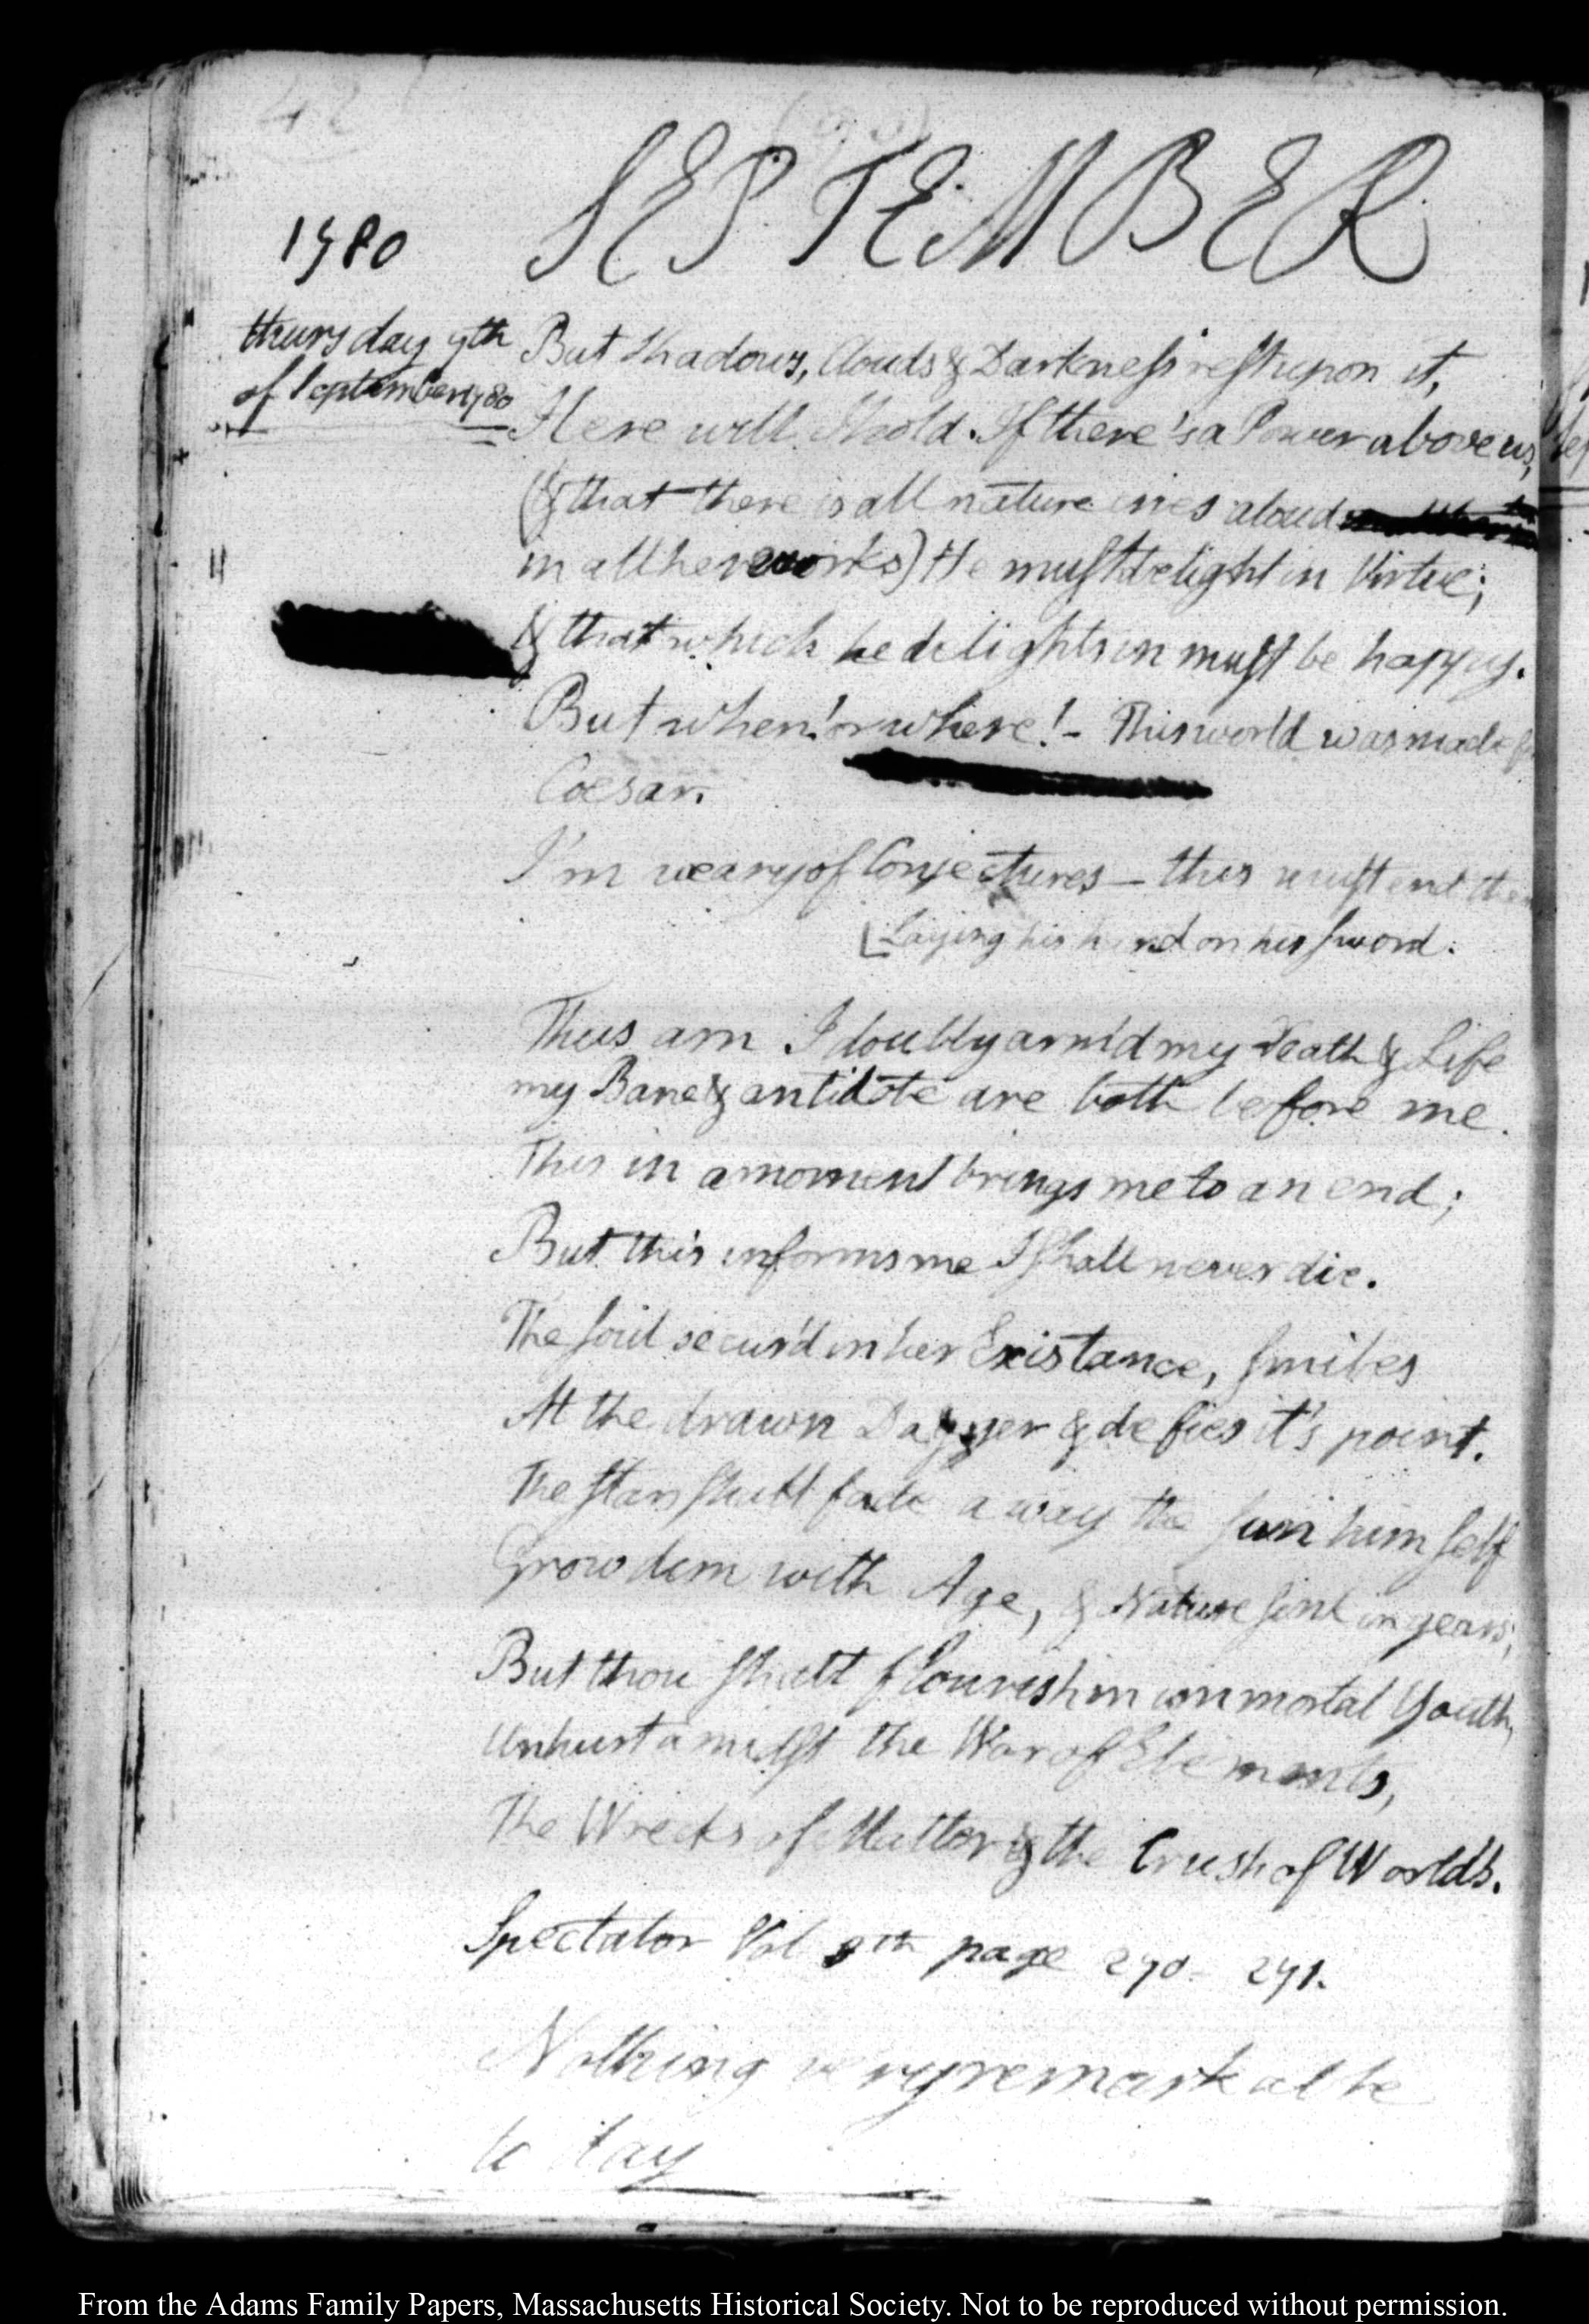 SEPTEMBER
1780
thursday 7th
of September 1780
But Shadows, Clouds & Darkness rest upon it,
Here will I hold. If there's a Power above us,
(& that there is all nature cries aloud
in all her works) He must delight in Virtue;
& that which he delights in must be happy.
But when! or where! - This world was made
Coesar.
I'm weary of Conjectures — this must end
[Laying his hand on his sword.
Thus am I doubly arm'd my Death & Life
my Bane & antidote are both before me.
This in a moment brings me to an end;
But this informs me I shall never die.
The soul secur'd in her Existance, smiles
At the drawn Dagger & defies it's point.
The stars shall fade away the sun himself
Grow dim with Age, & Nature sink in years,
But thou shalt flourish in immortal Youth,
Unhurt amidst the War of Elements,
The Wrecks of Matter & the Crush of Worlds.
Spectator Vol 8th page 270- 271.
Nothing very remarkable
to day
From the Adams Family Papers, Massachusetts Historical Society. Not to be reproduced without permission.